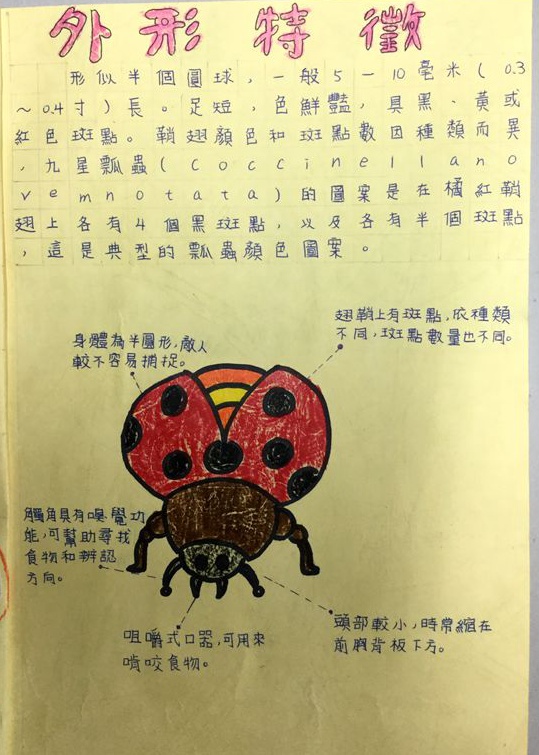 外形特徵
形似半個圓球,一般5-10毫米(0.3
~0.4寸)長。足短,色鮮豔,具黑、黃或
紅色斑點。鞘翅顏色和斑點數因種類而異
,九星瓢蟲(coccinellano
vemnotata)的圖案是在橘紅鞘
翅上各有4個黑斑點,以及各有半個斑點
,這是典型的瓢蟲顏色圖案。
翅鞘上有斑點,依種類
不同,斑點數量也不同。
身體為半圓形,敵人
較不容易捕捉。
觸角具有嗅覺功
能,可幫助尋找
食物和辨認
方向。
頭部較小,時常縮在
前胸背板下方。
咀嚼式口器,可用來
啃咬食物。